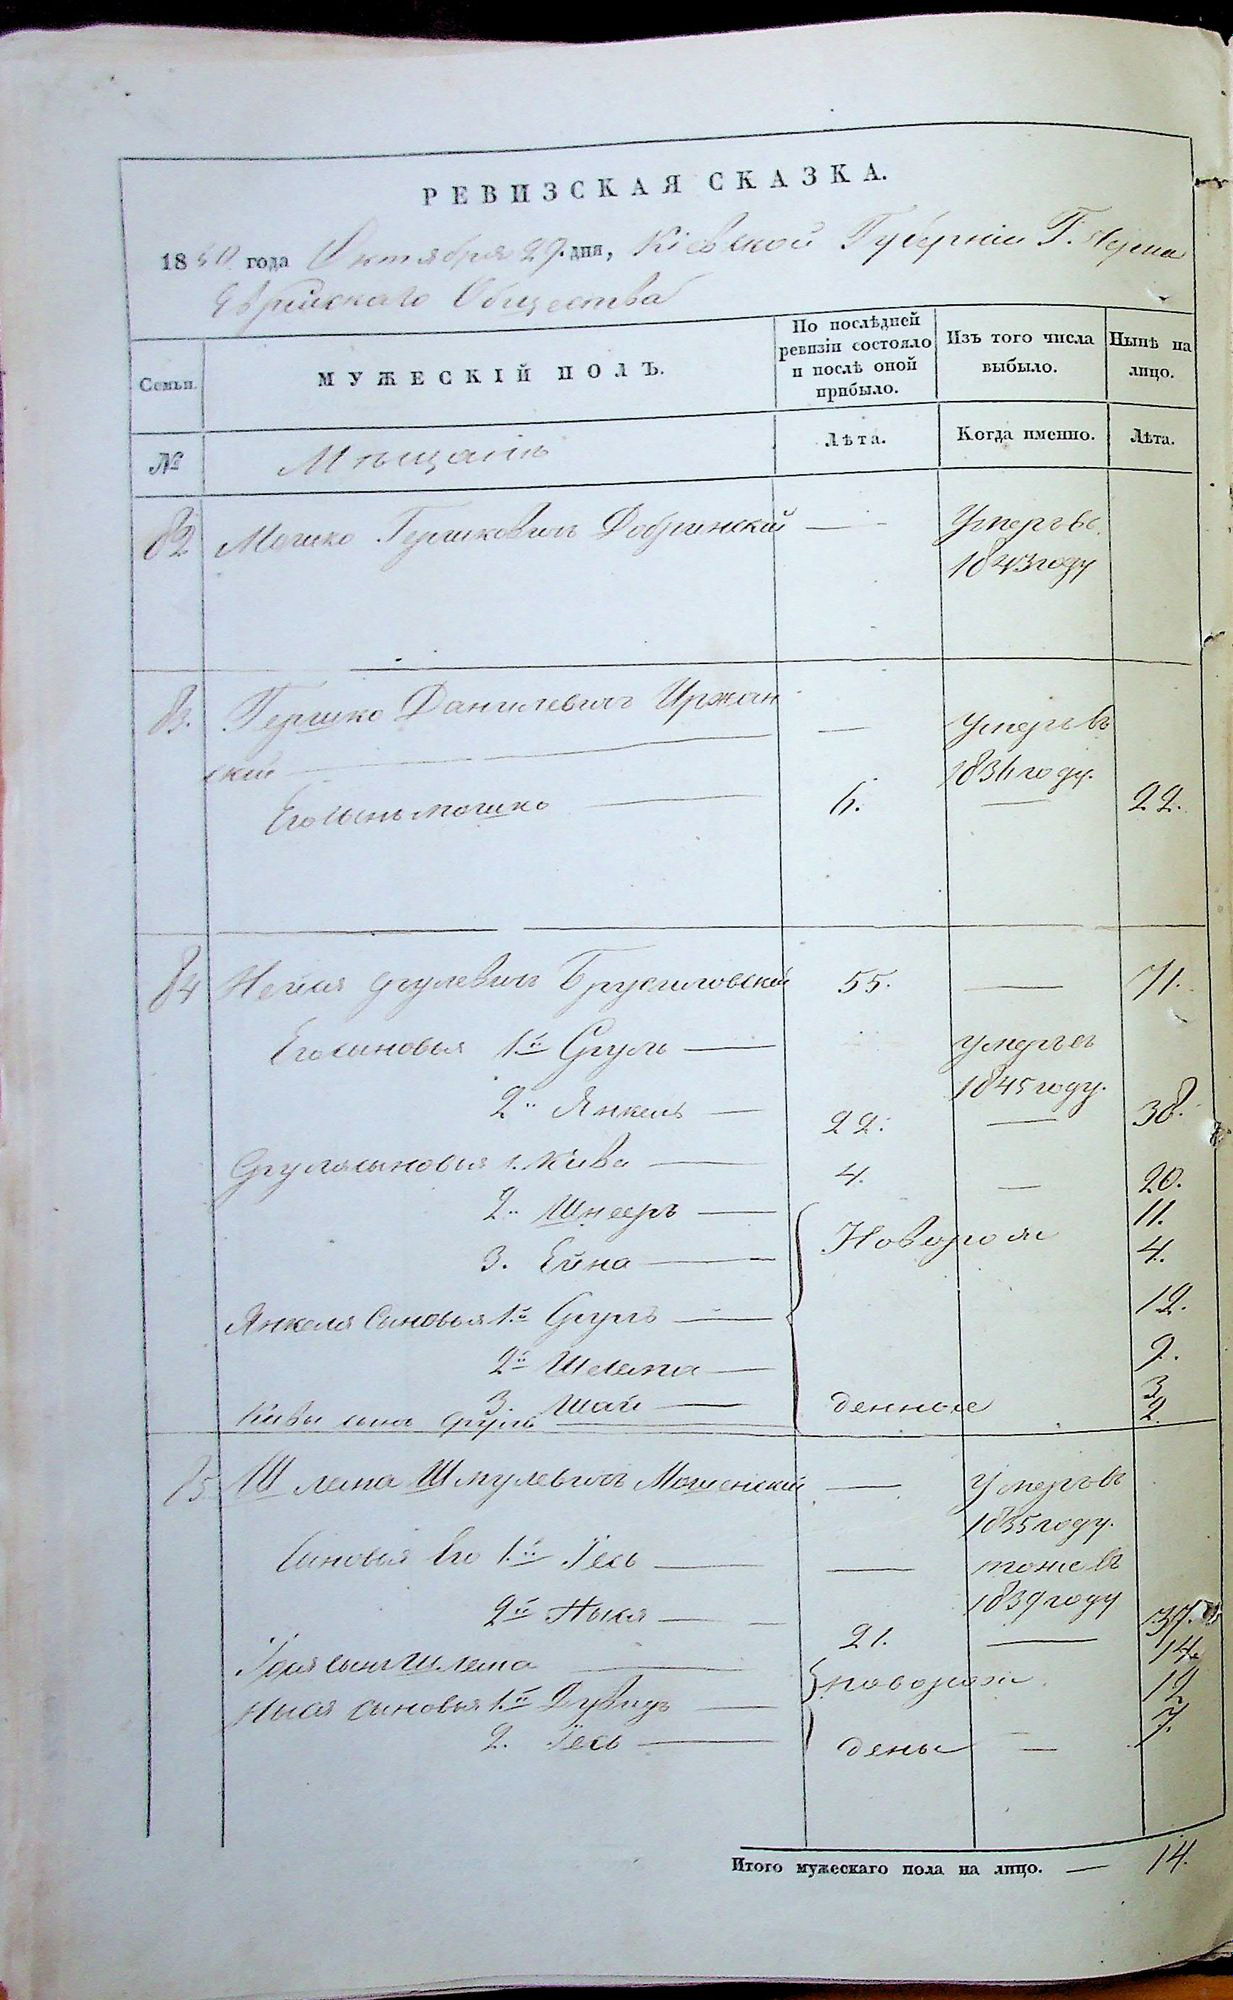 РЕВИЗСКАЯ СКАЗКА.
1850 года Октября 29. дня, Кіевской Губерніи Г.
Еврейскаго Общества
Семьи.
МУЖЕСКІЙ ПОЛЪ.
По послѣдней ревизіи состояло и послѣ оной прибыло.
Изъ того числа выбыло.
Нынѣ на лицо.
№
Мѣщанъ
Лѣта.
Когда именно.
Лѣта.
82 Мошко Гершковичъ — Умеръ въ
1843 году
83. Гершко Даниловичъ Иржан
скій — Умеръ въ
1836 году.
Его сынъ Мошко — 6. — 22.
84 Срулевичъ Брусиловскій 55. — 71.
Его сыновья 1й Сруль — умеръ въ
1845 году.
2й Янкель — 22. — 38.
Сруля сыновья 1. Кива — 4. — 20.
2й Шнееръ — Новорож 11.
3. Ейна — 4.
Янкеля Сыновья 1й Сруль — 12.
2й Шлема — 9.
3. Шай — денные 3
Кивы сына Сруль 2.
85 Шлема Шмулевичъ Мошенскій — Умеръ въ
1835 году.
Сыновья Его 1й Іось — — тоже въ
1839 году
2й — 21. — 37.
Іося сынъ Шлема — новорож 14.
сыновья 1й Дувидъ — 12
2. Іось — дены — 7.
Итого мужескаго пола на лицо. — 14.